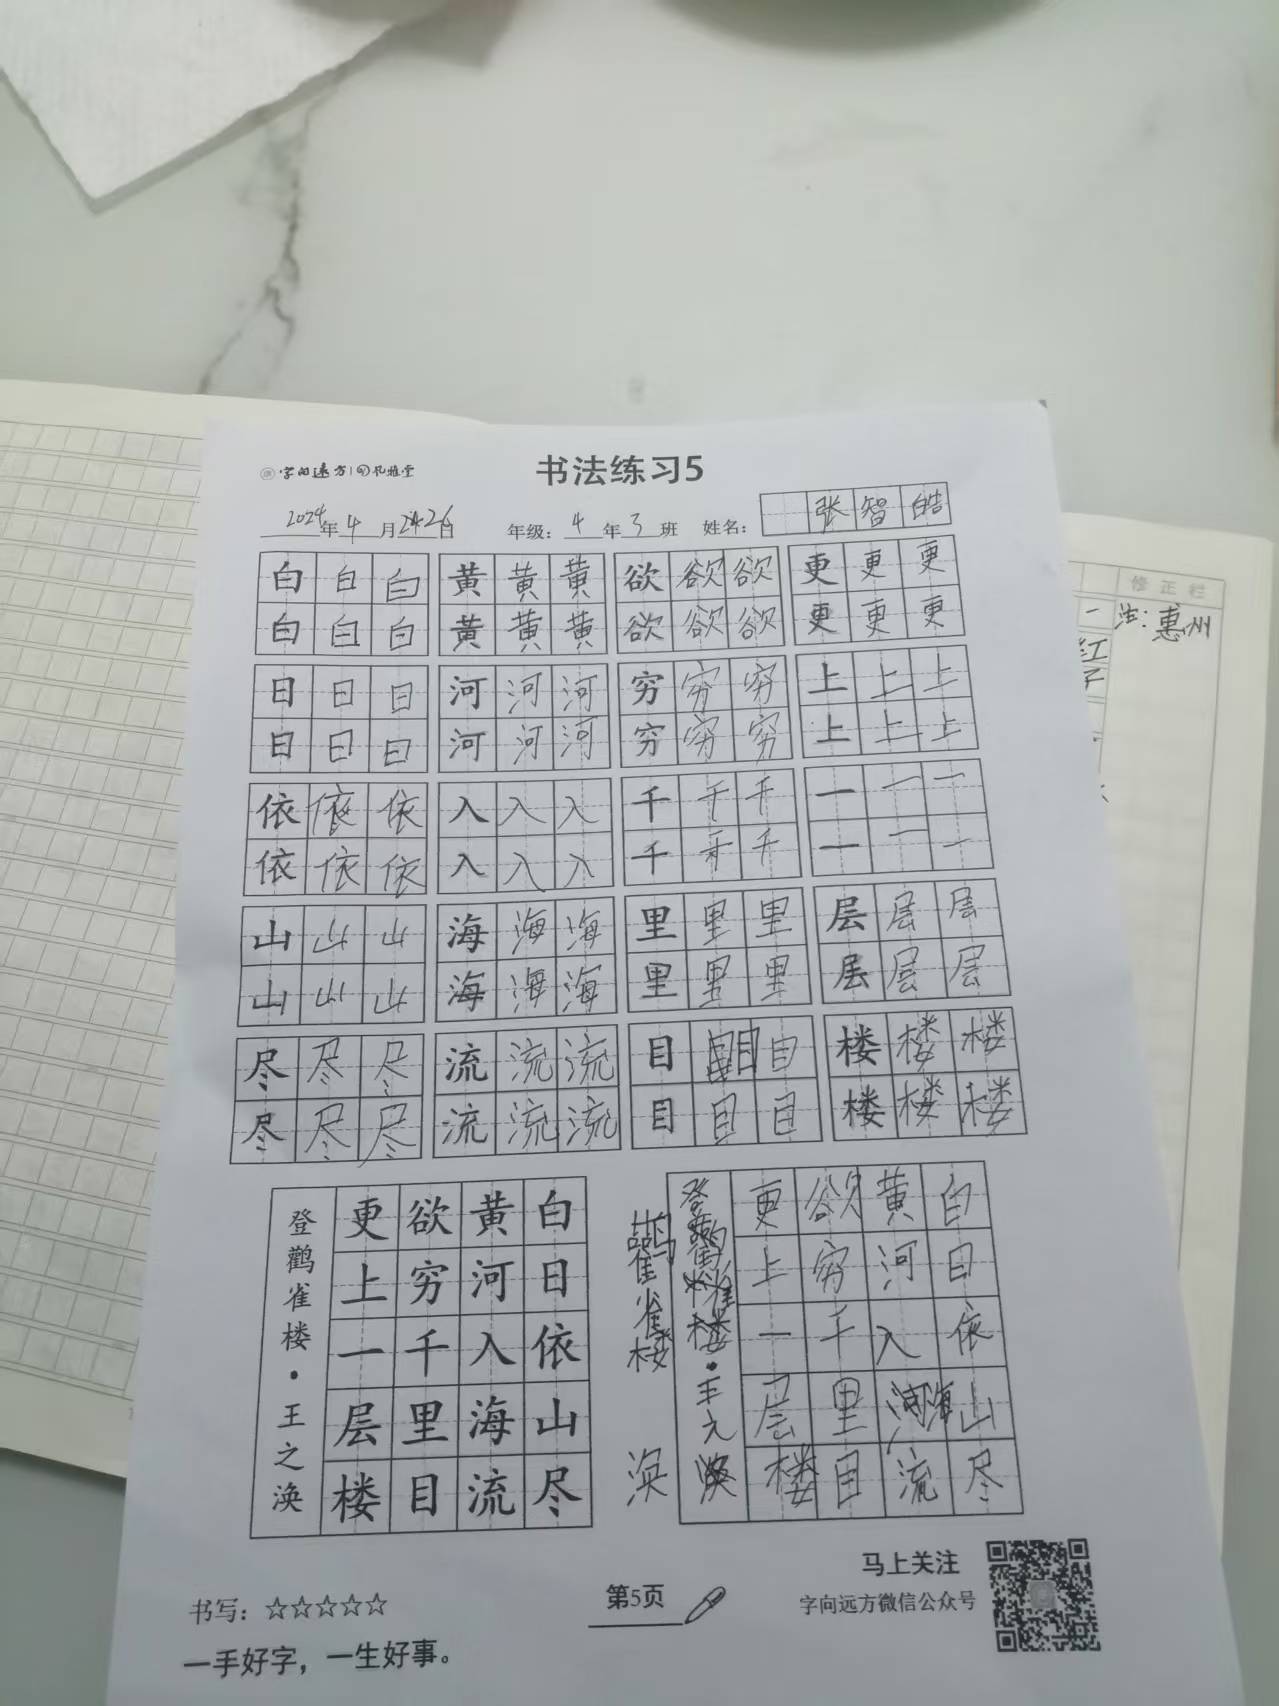 字向远方
书法练习5
2024年4月26日 年级：4年3班 姓名：张智皓
白白白 黄黄黄 欲欲欲 更更更
白白白 黄黄黄 欲欲欲 更更更
日日日 河河河 穷穷穷 上上上
日日日 河河河 穷穷穷 上上上
依依依 入入入 千千千 一一一
依依依 入入入 千千千 一一一
山山山 海海海 里里里 层层层
山山山 海海海 里里里 层层层
尽尽尽 流流流 目目目 楼楼楼
尽尽尽 流流流 目目目 楼楼楼
白日依山尽
黄河入海流
欲穷千里目
更上一层楼
登鹳雀楼·王之涣
白日依山尽
黄河入海流
欲穷千里目
更上一层楼
登鹳雀楼·王之涣
鹳雀楼
涣
书写：☆☆☆☆☆
一手好字，一生好事。
第5页
马上关注
字向远方微信公众号
修正栏
注：惠州